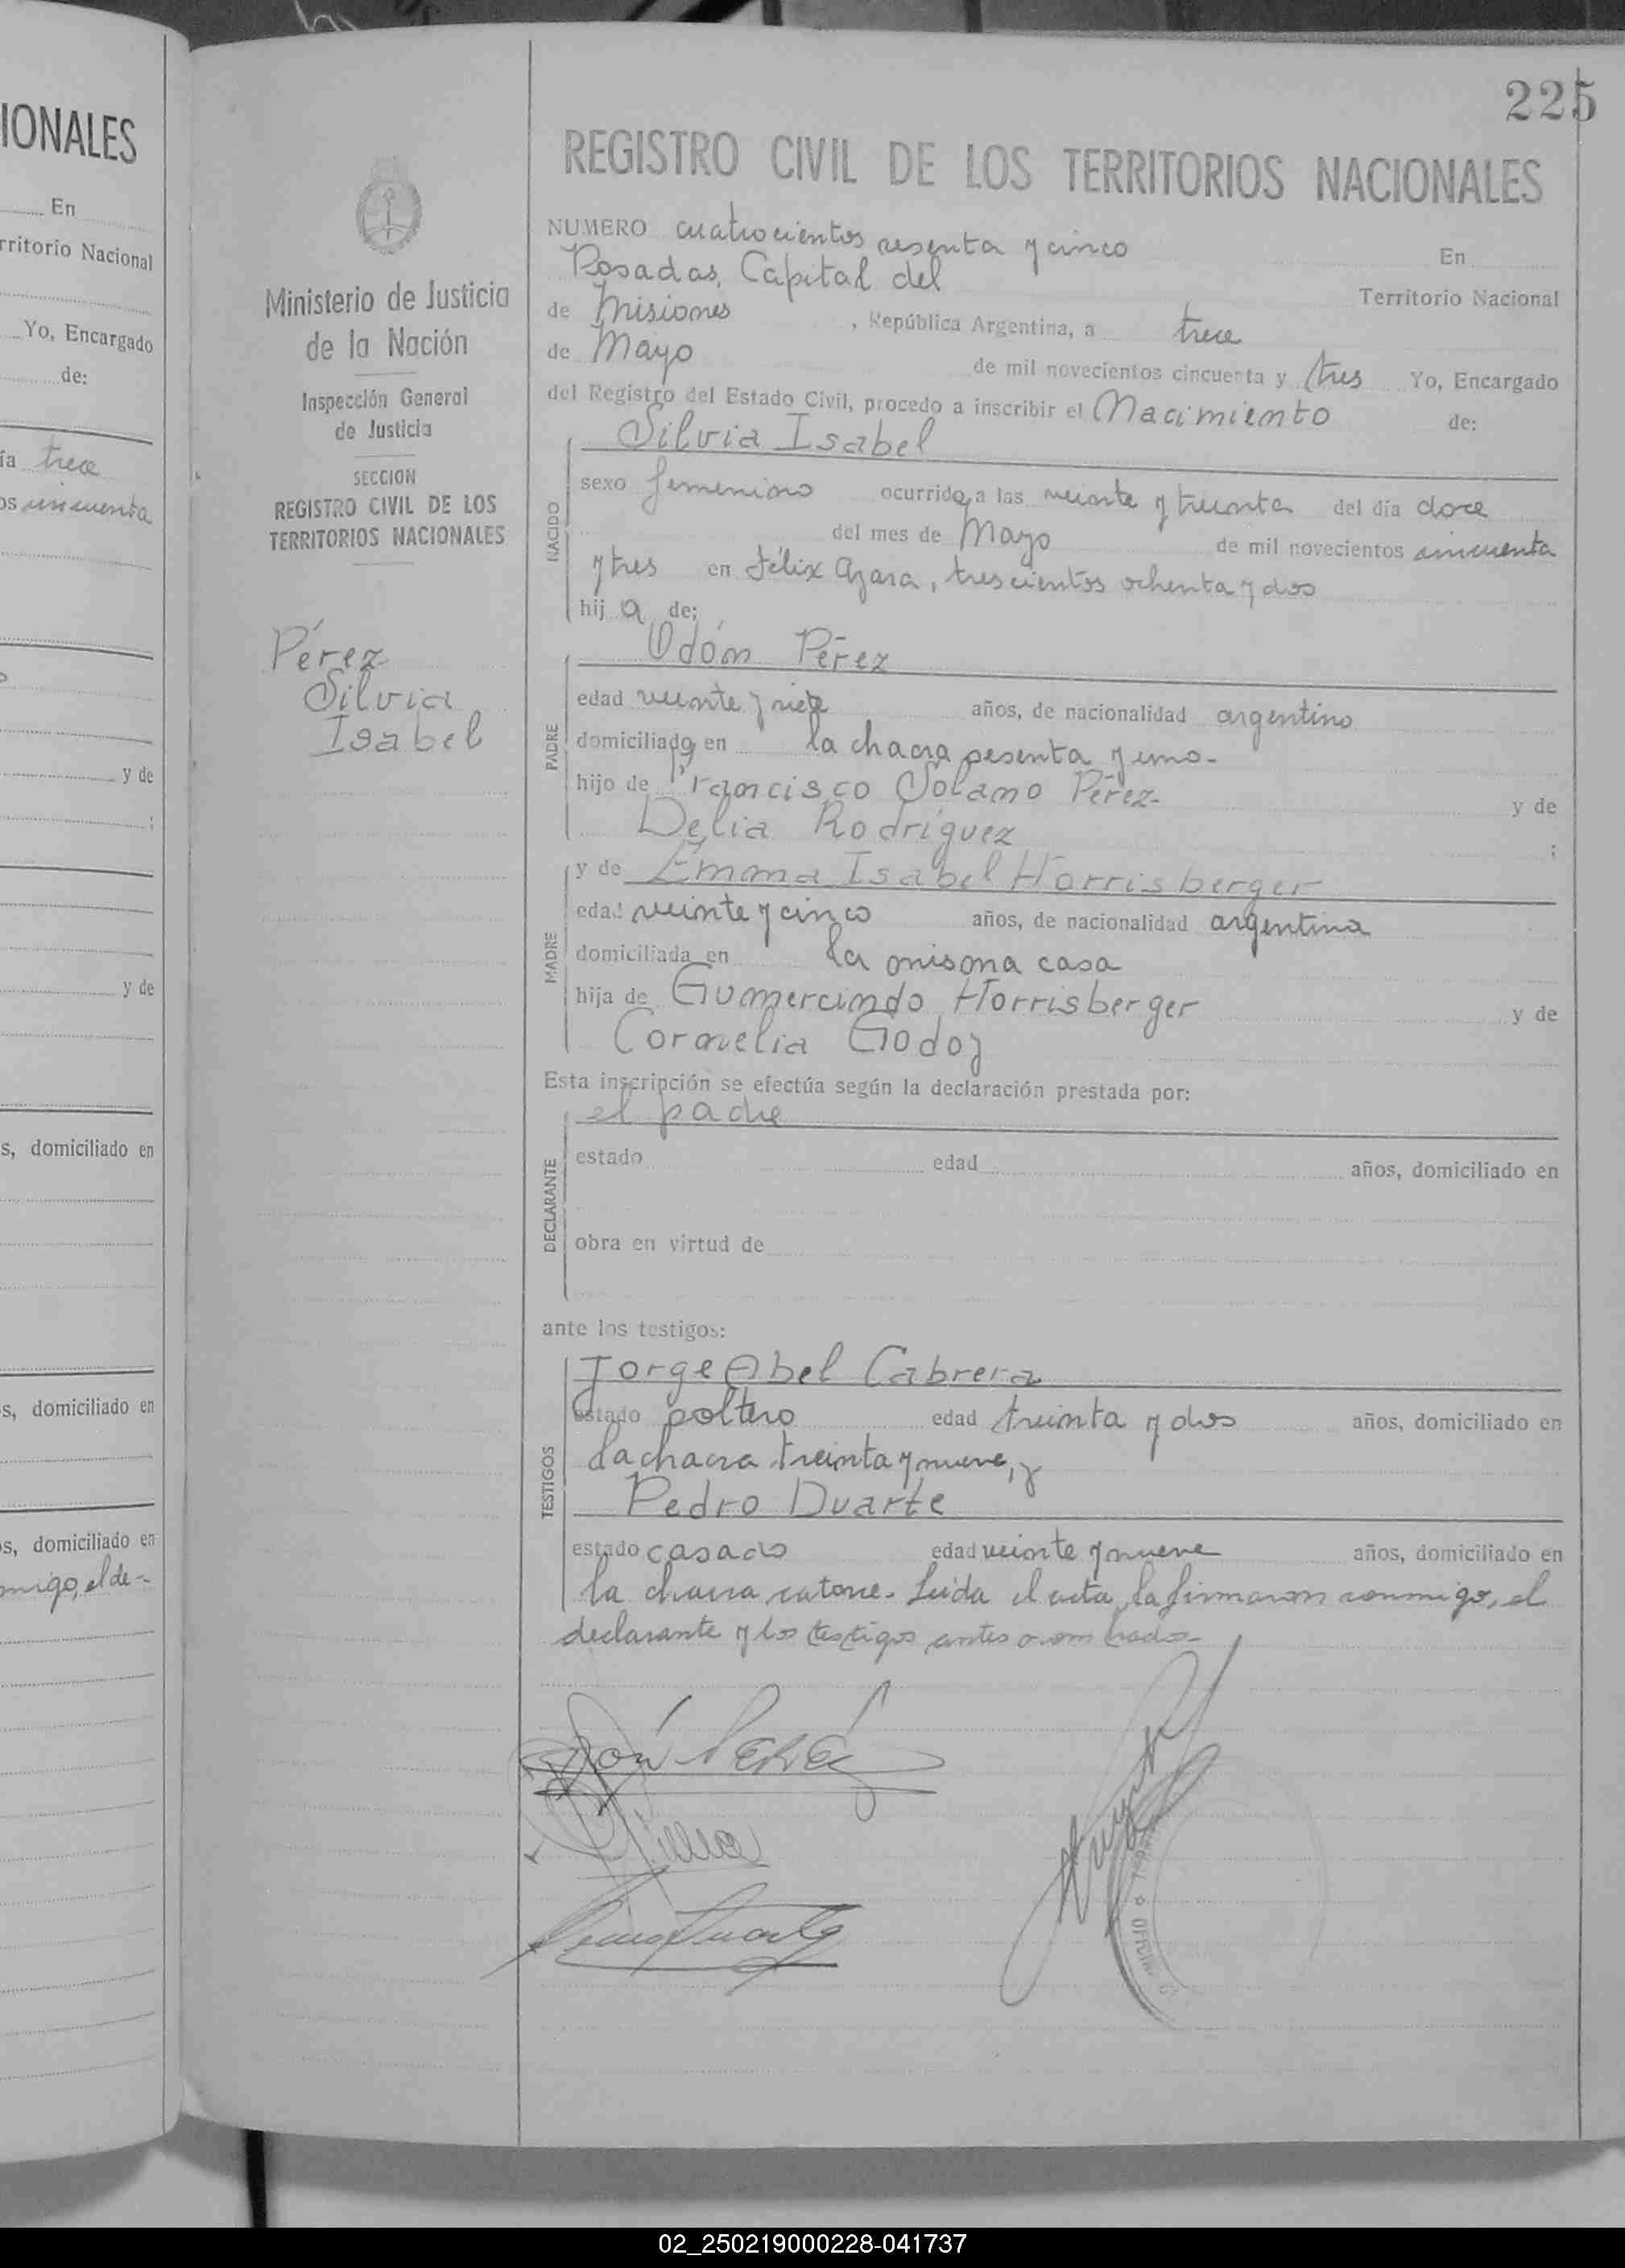 IONALES
En
rritorio Nacional
Yo, Encargado
de:
ía trece
os cincuenta
y de
;
y de
s, domiciliado en
s, domiciliado en
os, domiciliado en
nmigo, el de-
225
Ministerio de Justicia
de la Nación
Inspección General
de Justicia
SECCION
REGISTRO CIVIL DE LOS
TERRITORIOS NACIONALES
Pérez
Silvia
Isabel
REGISTRO CIVIL DE LOS TERRITORIOS NACIONALES
NUMERO cuatrocientos sesenta y cinco En
Posadas, Capital del Territorio Nacional
de Misiones , República Argentina, a trece
de Mayo de mil novecientos cincuenta y tres Yo, Encargado
del Registro del Estado Civil, procedo a inscribir el Nacimiento de:
Silvia Isabel
NACIDO
sexo femenino ocurrido a las veinte y treinta del día doce
del mes de Mayo de mil novecientos cincuenta
y tres en Félix Azara, trescientos ochenta y dos
hij a de;
Odón Pérez
PADRE
edad veinte y siete años, de nacionalidad argentino
domiciliado en la chacra sesenta y uno.
hijo de Francisco Solano Pérez y de
Delia Rodríguez ;
y de Emma Isabel Horrisberger
MADRE
edad veinte y cinco años, de nacionalidad argentina
domiciliada en la misma casa
hija de Gumercindo Horrisberger y de
Cornelia Godoy
Esta inscripción se efectúa según la declaración prestada por:
el padre
DECLARANTE
estado edad años, domiciliado en
obra en virtud de
ante los testigos:
TESTIGOS
Jorge Abel Cabrera
estado soltero edad treinta y dos años, domiciliado en
la chacra treinta y nueve, y
Pedro Duarte
estado casado edad veinte y nueve años, domiciliado en
la chacra catorce. Leida el acta, la firmaron conmigo, el
declarante y los testigos antes nombrados.
Odón Pérez
02_250219000228-041737